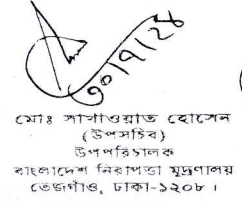 ৩০/৭/২৪
মোঃ সাখাওয়াত হোসেন
(উপসচিব)
উপপরিচালক
বাংলাদেশ নিরাপত্তা মুদ্রণালয়
তেজগাঁও, ঢাকা-১২০৮।